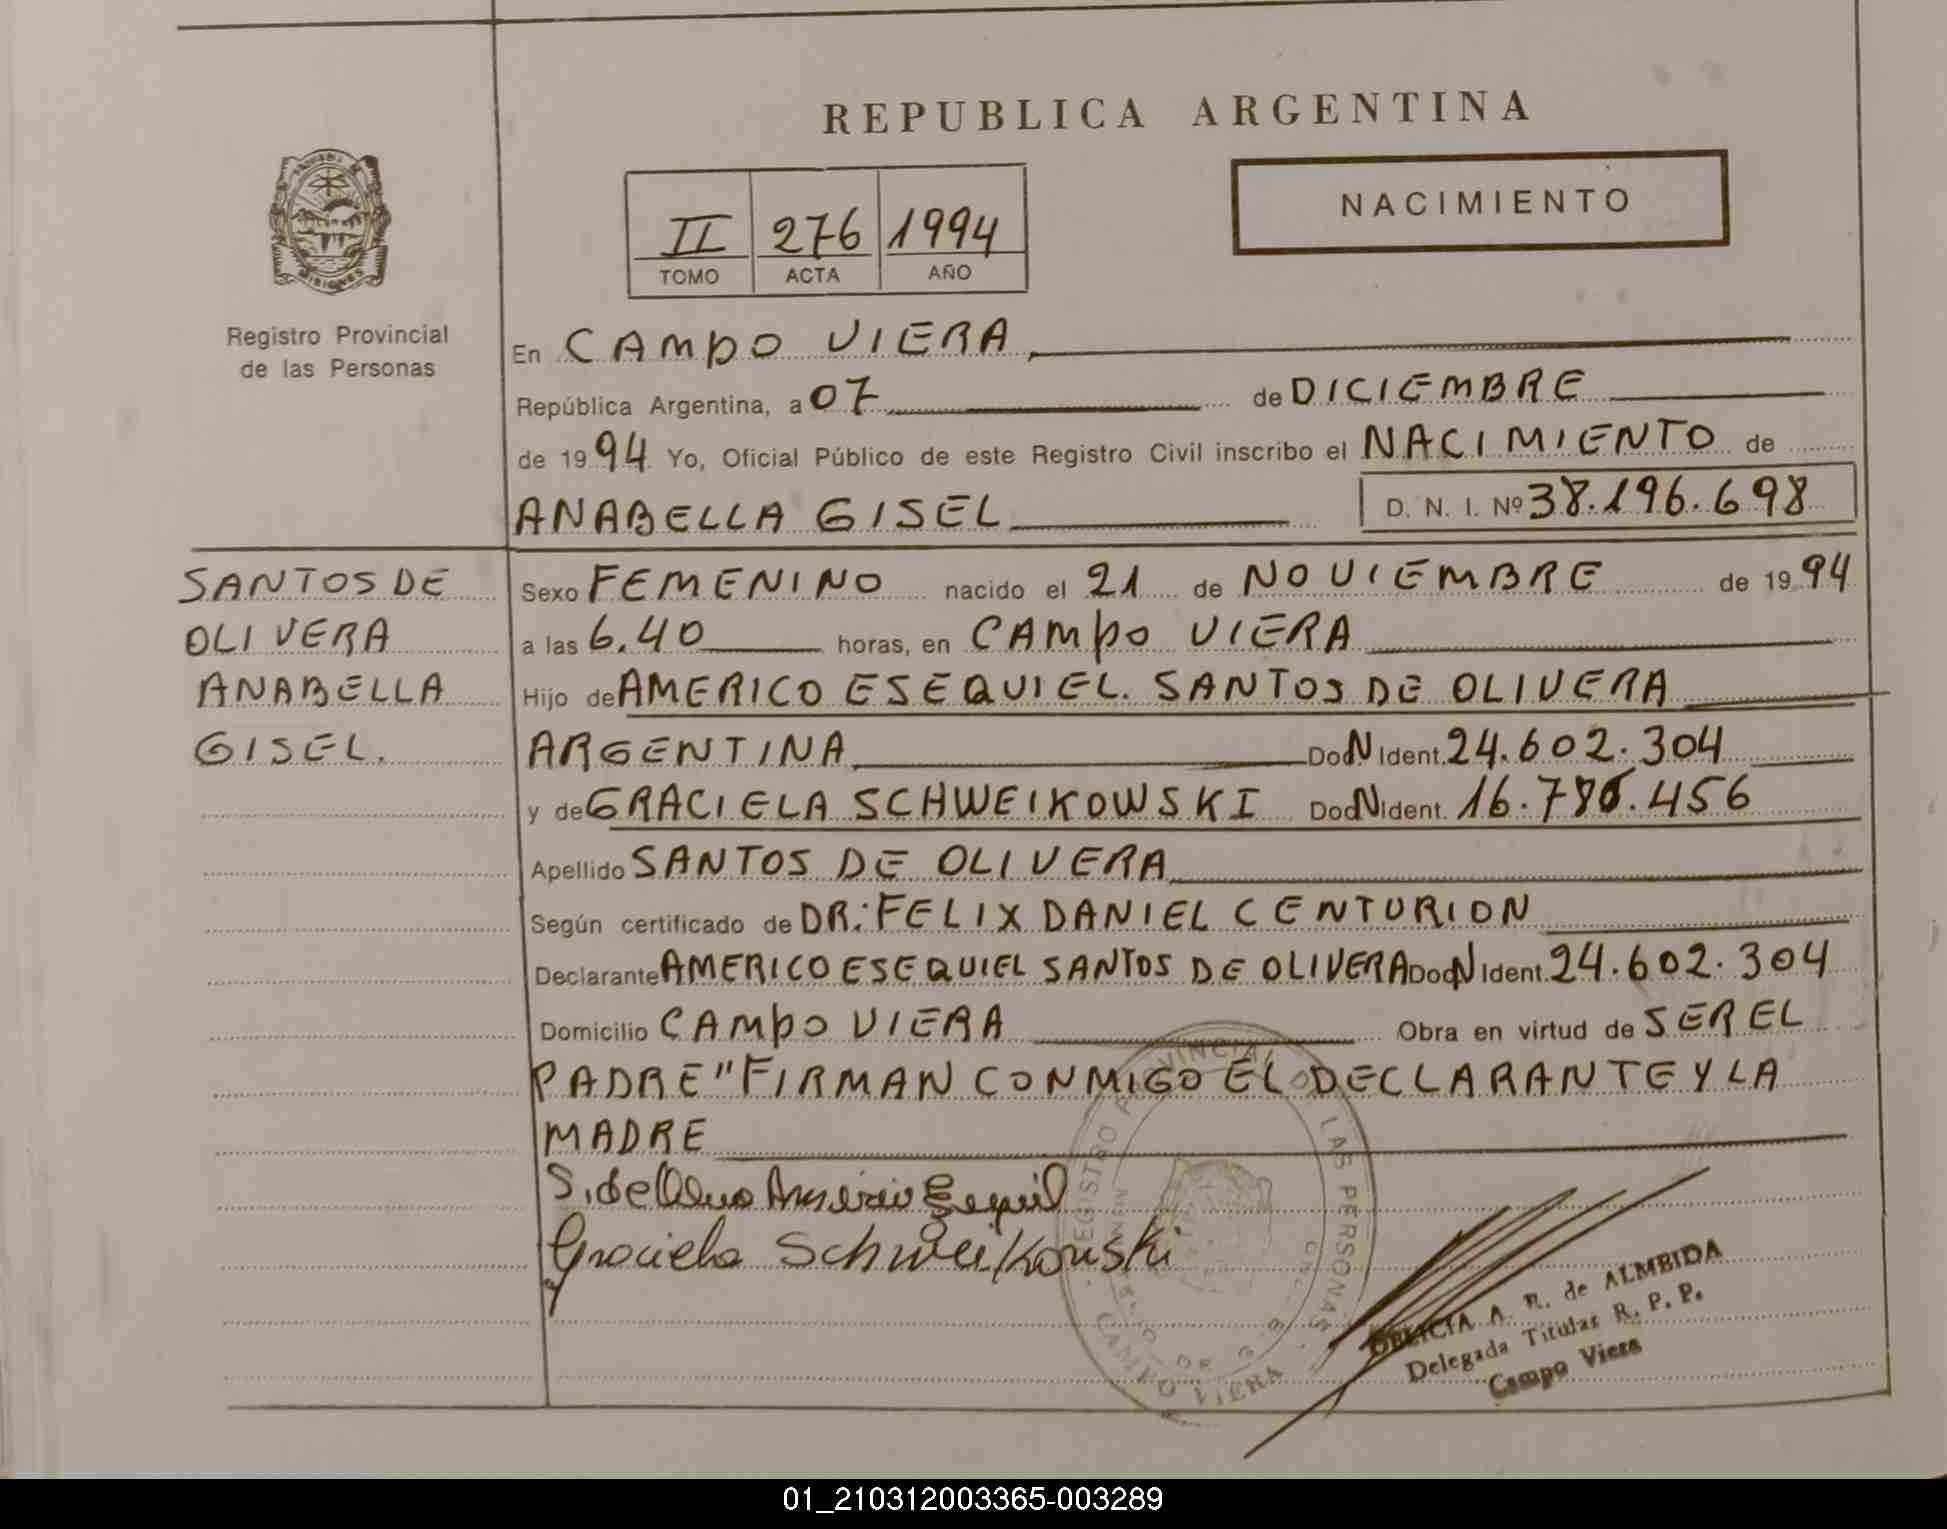 REPUBLICA ARGENTINA
NACIMIENTO
II 276 1994
TOMO ACTA AÑO
MISIONES
Registro Provincial
de las Personas
En CAMPO VIERA
República Argentina, a 07 de DICIEMBRE
de 1994 Yo, Oficial Público de este Registro Civil inscribo el NACIMIENTO de
ANABELLA GISEL D. N. I. Nº 38.196.698
SANTOS DE
OLIVERA
ANABELLA
GISEL.
Sexo FEMENINO nacido el 21 de NOVIEMBRE de 1994
a las 6.40 horas, en CAMPO VIERA
Hijo de AMERICO ESEQUIEL. SANTOS DE OLIVERA
ARGENTINA DocN Ident. 24.602.304
y de GRACIELA SCHWEIKOWSKI DocN Ident. 16.786.456
Apellido SANTOS DE OLIVERA
Según certificado de DR: FELIX DANIEL CENTURION
Declarante AMERICO ESEQUIEL SANTOS DE OLIVERA DocN Ident. 24.602.304
Domicilio CAMPO VIERA Obra en virtud de SER EL
PADRE" FIRMAN CONMIGO EL DECLARANTE Y LA
MADRE
Graciela Schweikowski
REGISTRO PROVINCIAL DE LAS PERSONAS
CAMPO VIERA
DELICIA A. R. de ALMEIDA
Delegada Titular R. P. P.
Campo Viera
01_210312003365-003289